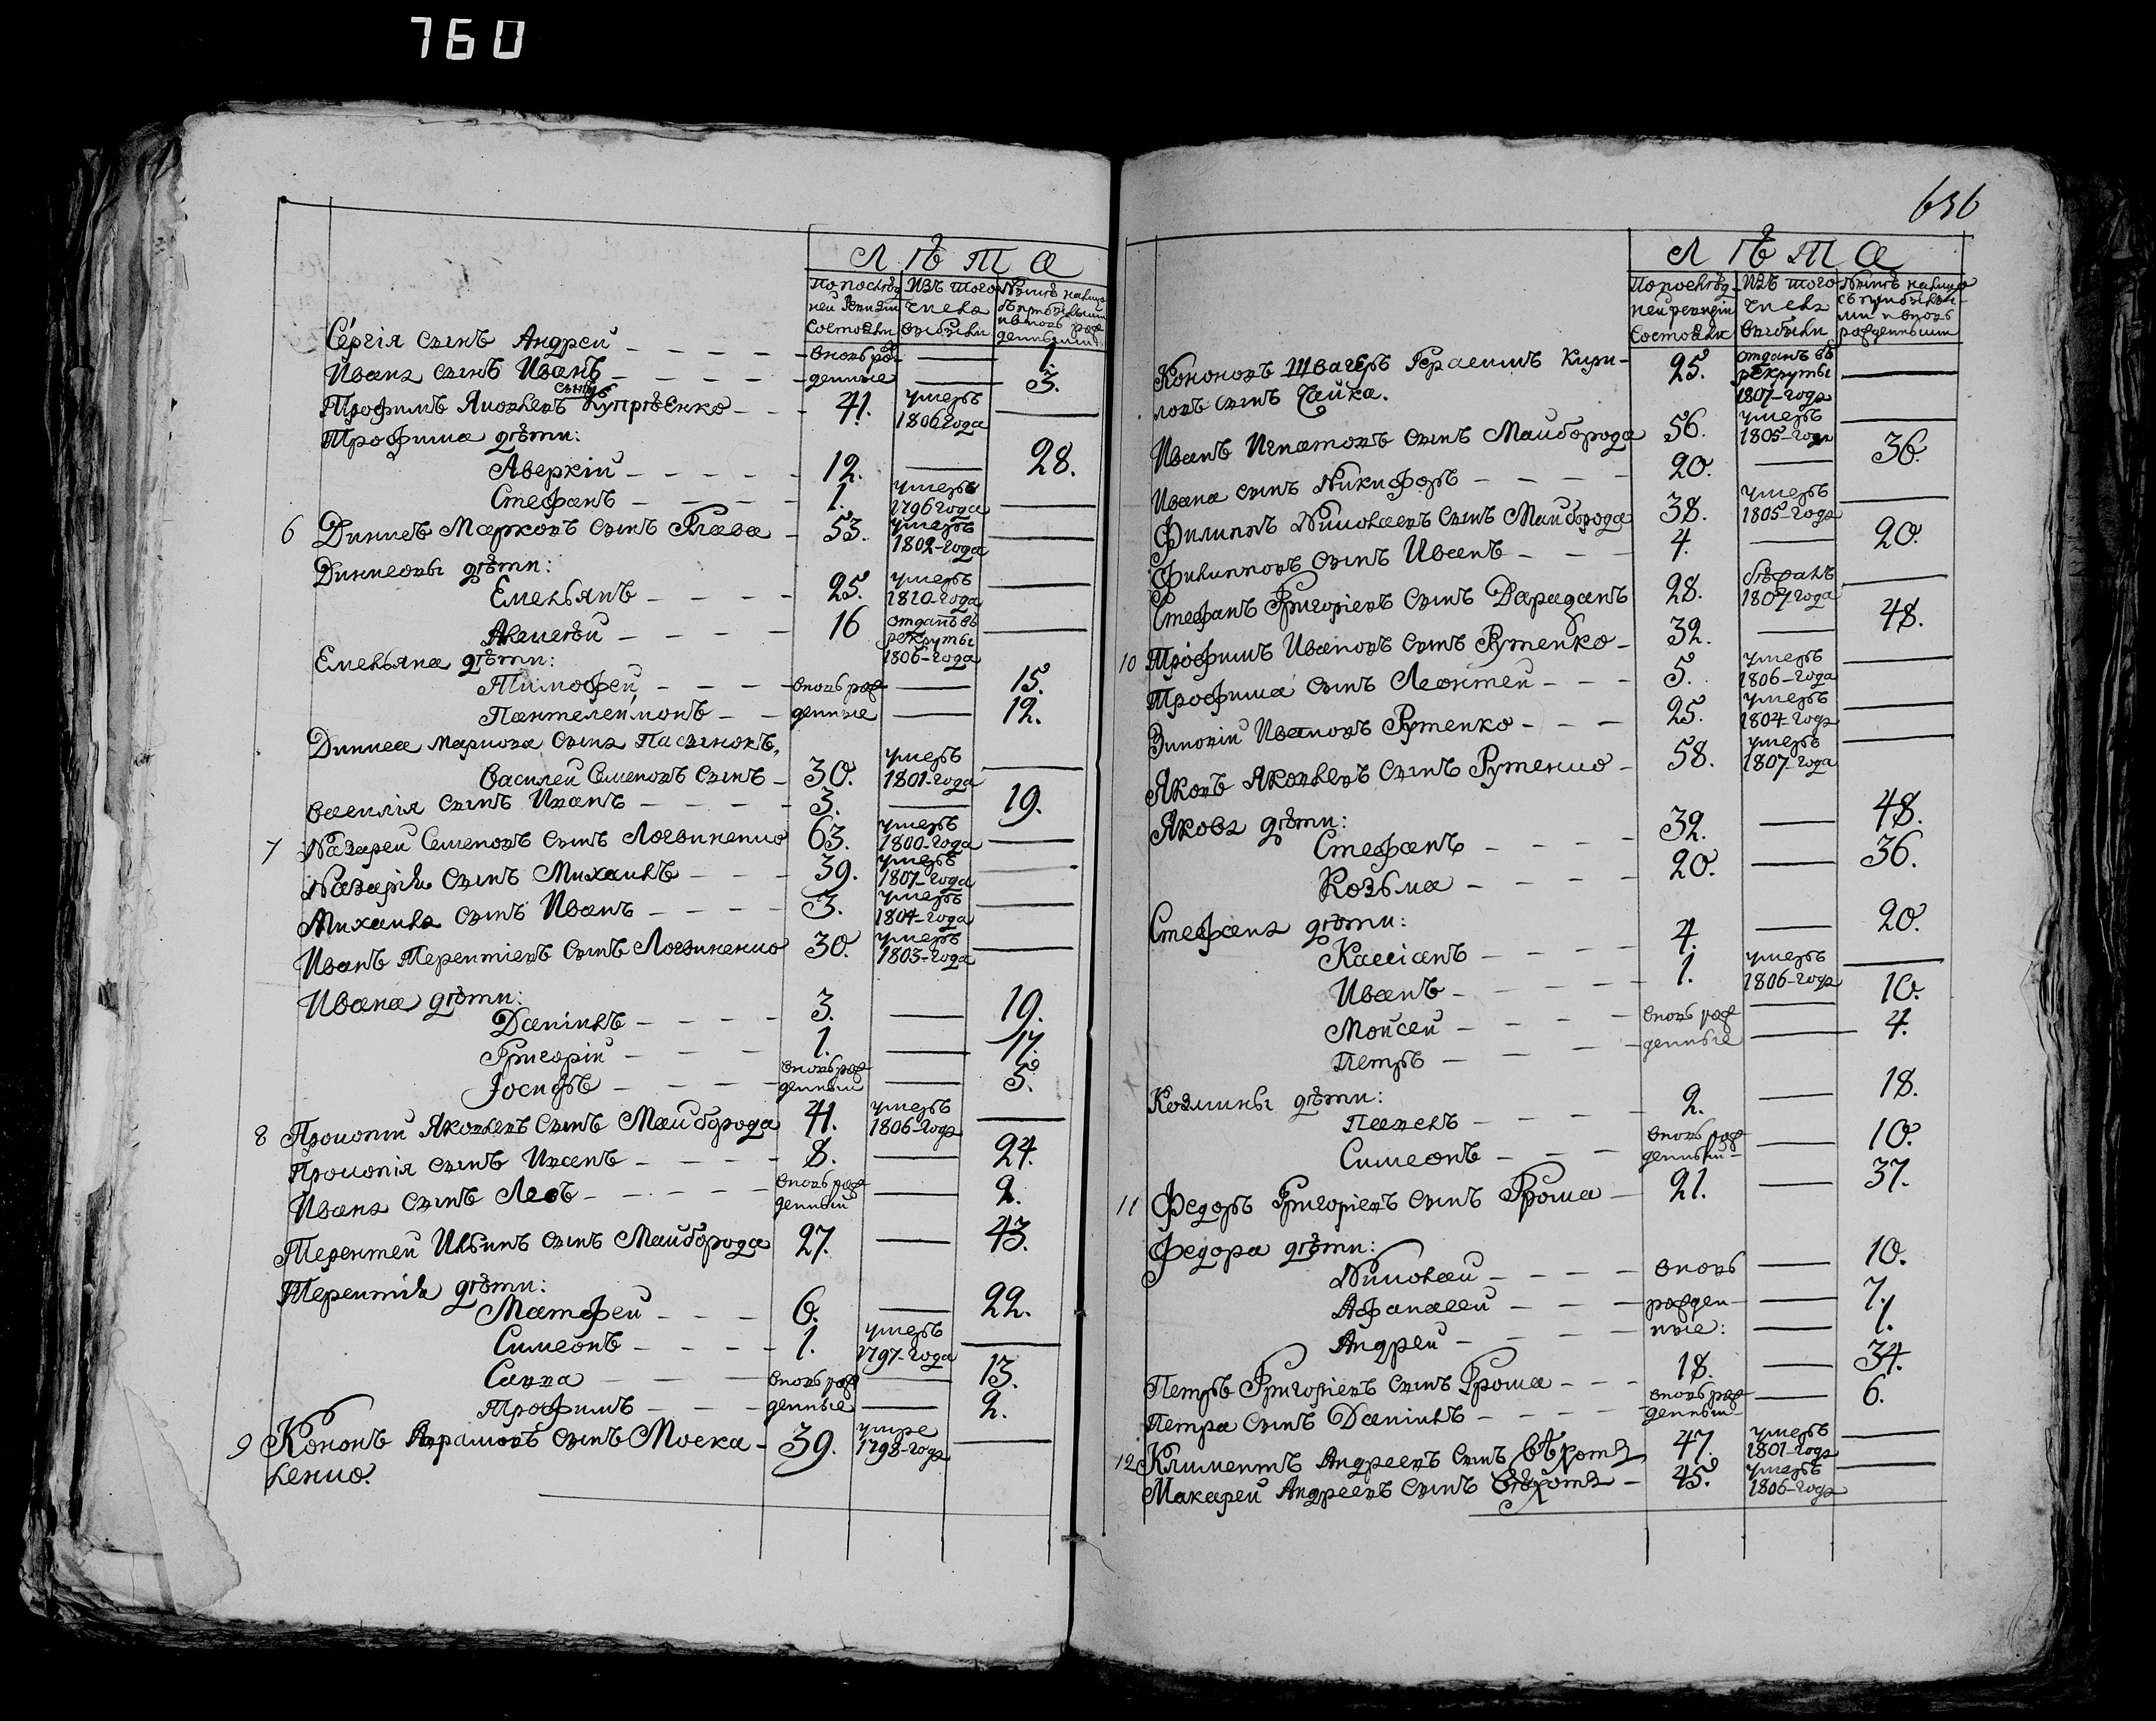 760
ЛѢТА
По послѣд- Изъ того Нынѣ налицо
ней ревизіи числа съ прибылыми
состояли выбыли и вновь рож-
денными
Сергія сынъ Андрей — вновь рож- — 1.
Ивана сынъ Иванъ — денные — 3.
Трофимъ Яковлевъ сынъ Купрѣенко — 41. умеръ 1806 года —
Трофима дѣти:
Аверкій — 12. — 28.
Стефанъ — 1. умеръ 1796 года —
6 Динисъ Марковъ сынъ Глава — 53. умеръ 1802-года —
Динисовы дѣти:
Емельянъ — 25. умеръ 1810-года —
Алексѣй — 16 отданъ въ рекруты 1806-года —
Емельяна дѣти:
Тимофей — вновь рож- — 15.
Пантелеймонъ — денные — 12.
Диниса Маркова сына пасынокъ,
Василей Семеновъ сынъ — 30. умеръ 1801-года —
Василія сынъ Иванъ — 3. — 19.
7 Назарей Семеновъ сынъ Логвиненко 63. умеръ 1800-года —
Назарія сынъ Михаилъ — 39. умеръ 1807-года —
Михаила сынъ Иванъ — 3. умеръ 1804-года —
Иванъ Терентіевъ сынъ Логвиненко 30. умеръ 1803-года —
Ивана дѣти:
Даніилъ — 3. — 19.
Григорій — 1. — 17.
Іосифъ — вновь рожденный — 5.
8 Прокопій Яковлевъ сынъ Майборода 41. умеръ 1806-года —
Прокопія сынъ Иванъ — 8. — 24.
Ивана сынъ Левъ — вновь рожденный — 2.
Терентей Ильинъ сынъ Майборода 27. — 43.
Терентія дѣти:
Матфей — 6. — 22.
Симеонъ — 1. умеръ 1797-года —
Савва — вновь рож- — 13.
Трофимъ — денные — 2.
9 Кононъ Аврамовъ сынъ Моска- 39. умре 1798-года —
ленко.
636
ЛѢТА
По послѣд- Изъ того Нынѣ налицо
ней ревизіи числа съ прибылы-
состояли выбыли ми и вновь
рожденными
Кононовъ швагеръ Герасимъ Кири- 25. отданъ въ рекруты 1807-года —
ловъ сынъ Чайка.
Иванъ Игнатовъ сынъ Майборода 56. умеръ 1805-года —
Ивана сынъ Никифоръ — 20. — 36.
Филиппъ Николаевъ сынъ Майборода 38. умеръ 1805-года —
Филиповъ сынъ Иванъ — 4. — 20.
Стефанъ Григоріевъ сынъ Дараданъ 28. бѣжалъ 1807-года —
10 Трофимъ Ивановъ сынъ Рутенко — 32. — 48.
Трофима сынъ Леонтей — 5. умеръ 1806-года —
Зиновій Ивановъ Рутенко — 25. умеръ 1804-года —
Яковъ Яковлевъ сынъ Рутенко — 58. умеръ 1807-года —
Якова дѣти:
Стефанъ — 32. — 48.
Козьма — 20. — 36.
Стефана дѣти:
Кассіанъ — 4. — 20.
Иванъ — 1. умеръ 1806-года —
Мойсей — вновь рож- — 10.
Петръ — денные — 4.
Козмины дѣти:
Павелъ — 2. — 18.
Симеонъ — вновь рожденный — 10.
11 Федоръ Григоріевъ сынъ Гроша — 21. — 37.
Федора дѣти:
Николай — вновь — 10.
Афанасей — рожден- — 7.
Андрей — ные: — 1.
Петръ Григоріевъ сынъ Гроша — 18. — 34.
Петра сынъ Даніилъ — вновь рожденный — 6.
12 Климентъ Андреевъ сынъ 47. умеръ 1801-года —
Макарей Андреевъ сынъ 45. умеръ 1806-года —